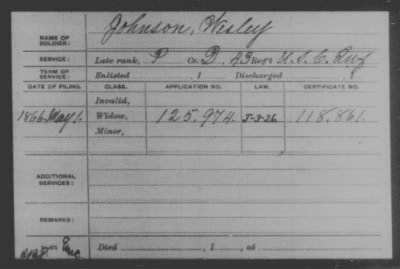 NAME OF SOLDIER: Johnson, Wesley
SERVICE: Late rank, P Co. D, 43 Reg't U.S.C. Inf
TERM OF SERVICE: Enlisted , 1 Discharged , 1
DATE OF FILING. CLASS. APPLICATION NO. LAW. CERTIFICATE NO.
Invalid,
1866 May 1. Widow, 125.974 118.861.
Minor,
ADDITIONAL SERVICES:
REMARKS:
Died , 1 , at